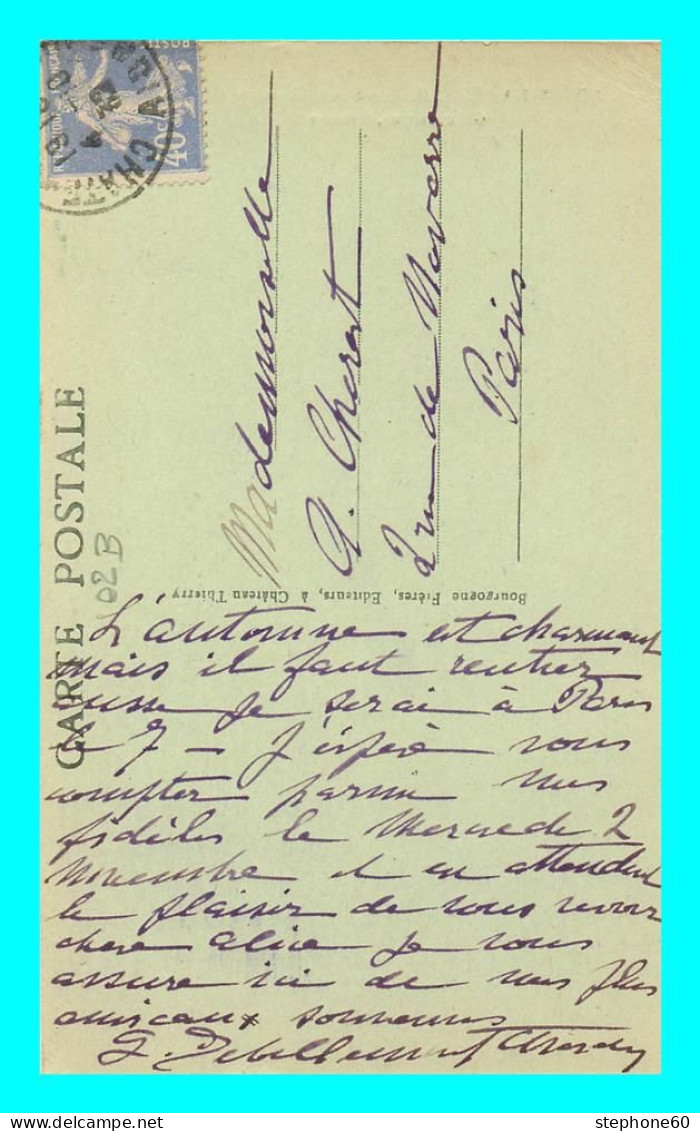 CARTE POSTALE
02B
40c
Mademoiselle
A. Cherest
2 rue de Navarre
Paris
Bourgogne Frères, Editeurs, à Château Thierry
L'automne est charmant
mais il faut rentrer
aussi je serai à Paris
le 7 – J'espère vous
compter parmi mes
fidèles le Mercredi 2
Novembre et en attendant
le plaisir de vous revoir
chère Alice je vous
assure ici de mes plus
amicaux souvenirs
stephone60